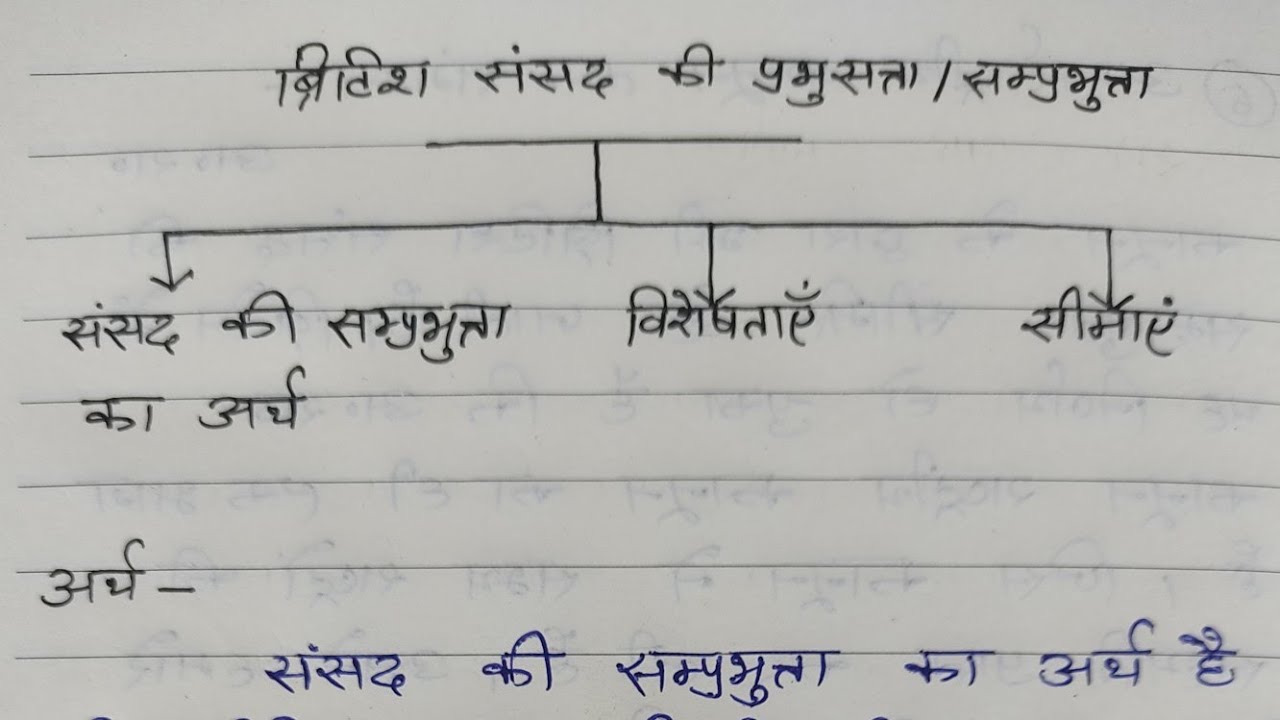 ब्रिटिश संसद की प्रभुसत्ता / सम्प्रभुत्ता
संसद की सम्प्रभुत्ता विशेषताएँ सीमाएं
का अर्थ
अर्थ –
संसद की सम्प्रभुत्ता का अर्थ है